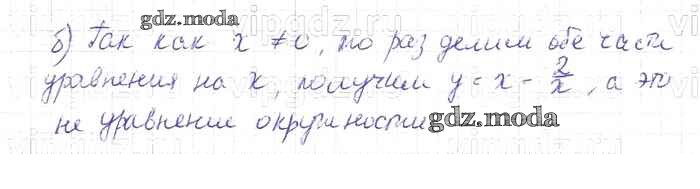 gdz.moda
б) Так как x ≠ 0, то разделим обе части
уравнения на x, получим y = x - 2/x, а это
не уравнение окружности gdz.moda
gdz.moda